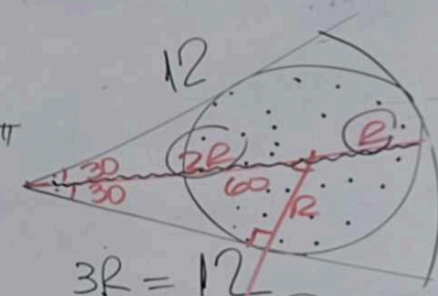 12
π
30
30
2R
R
60
R
3R = 12